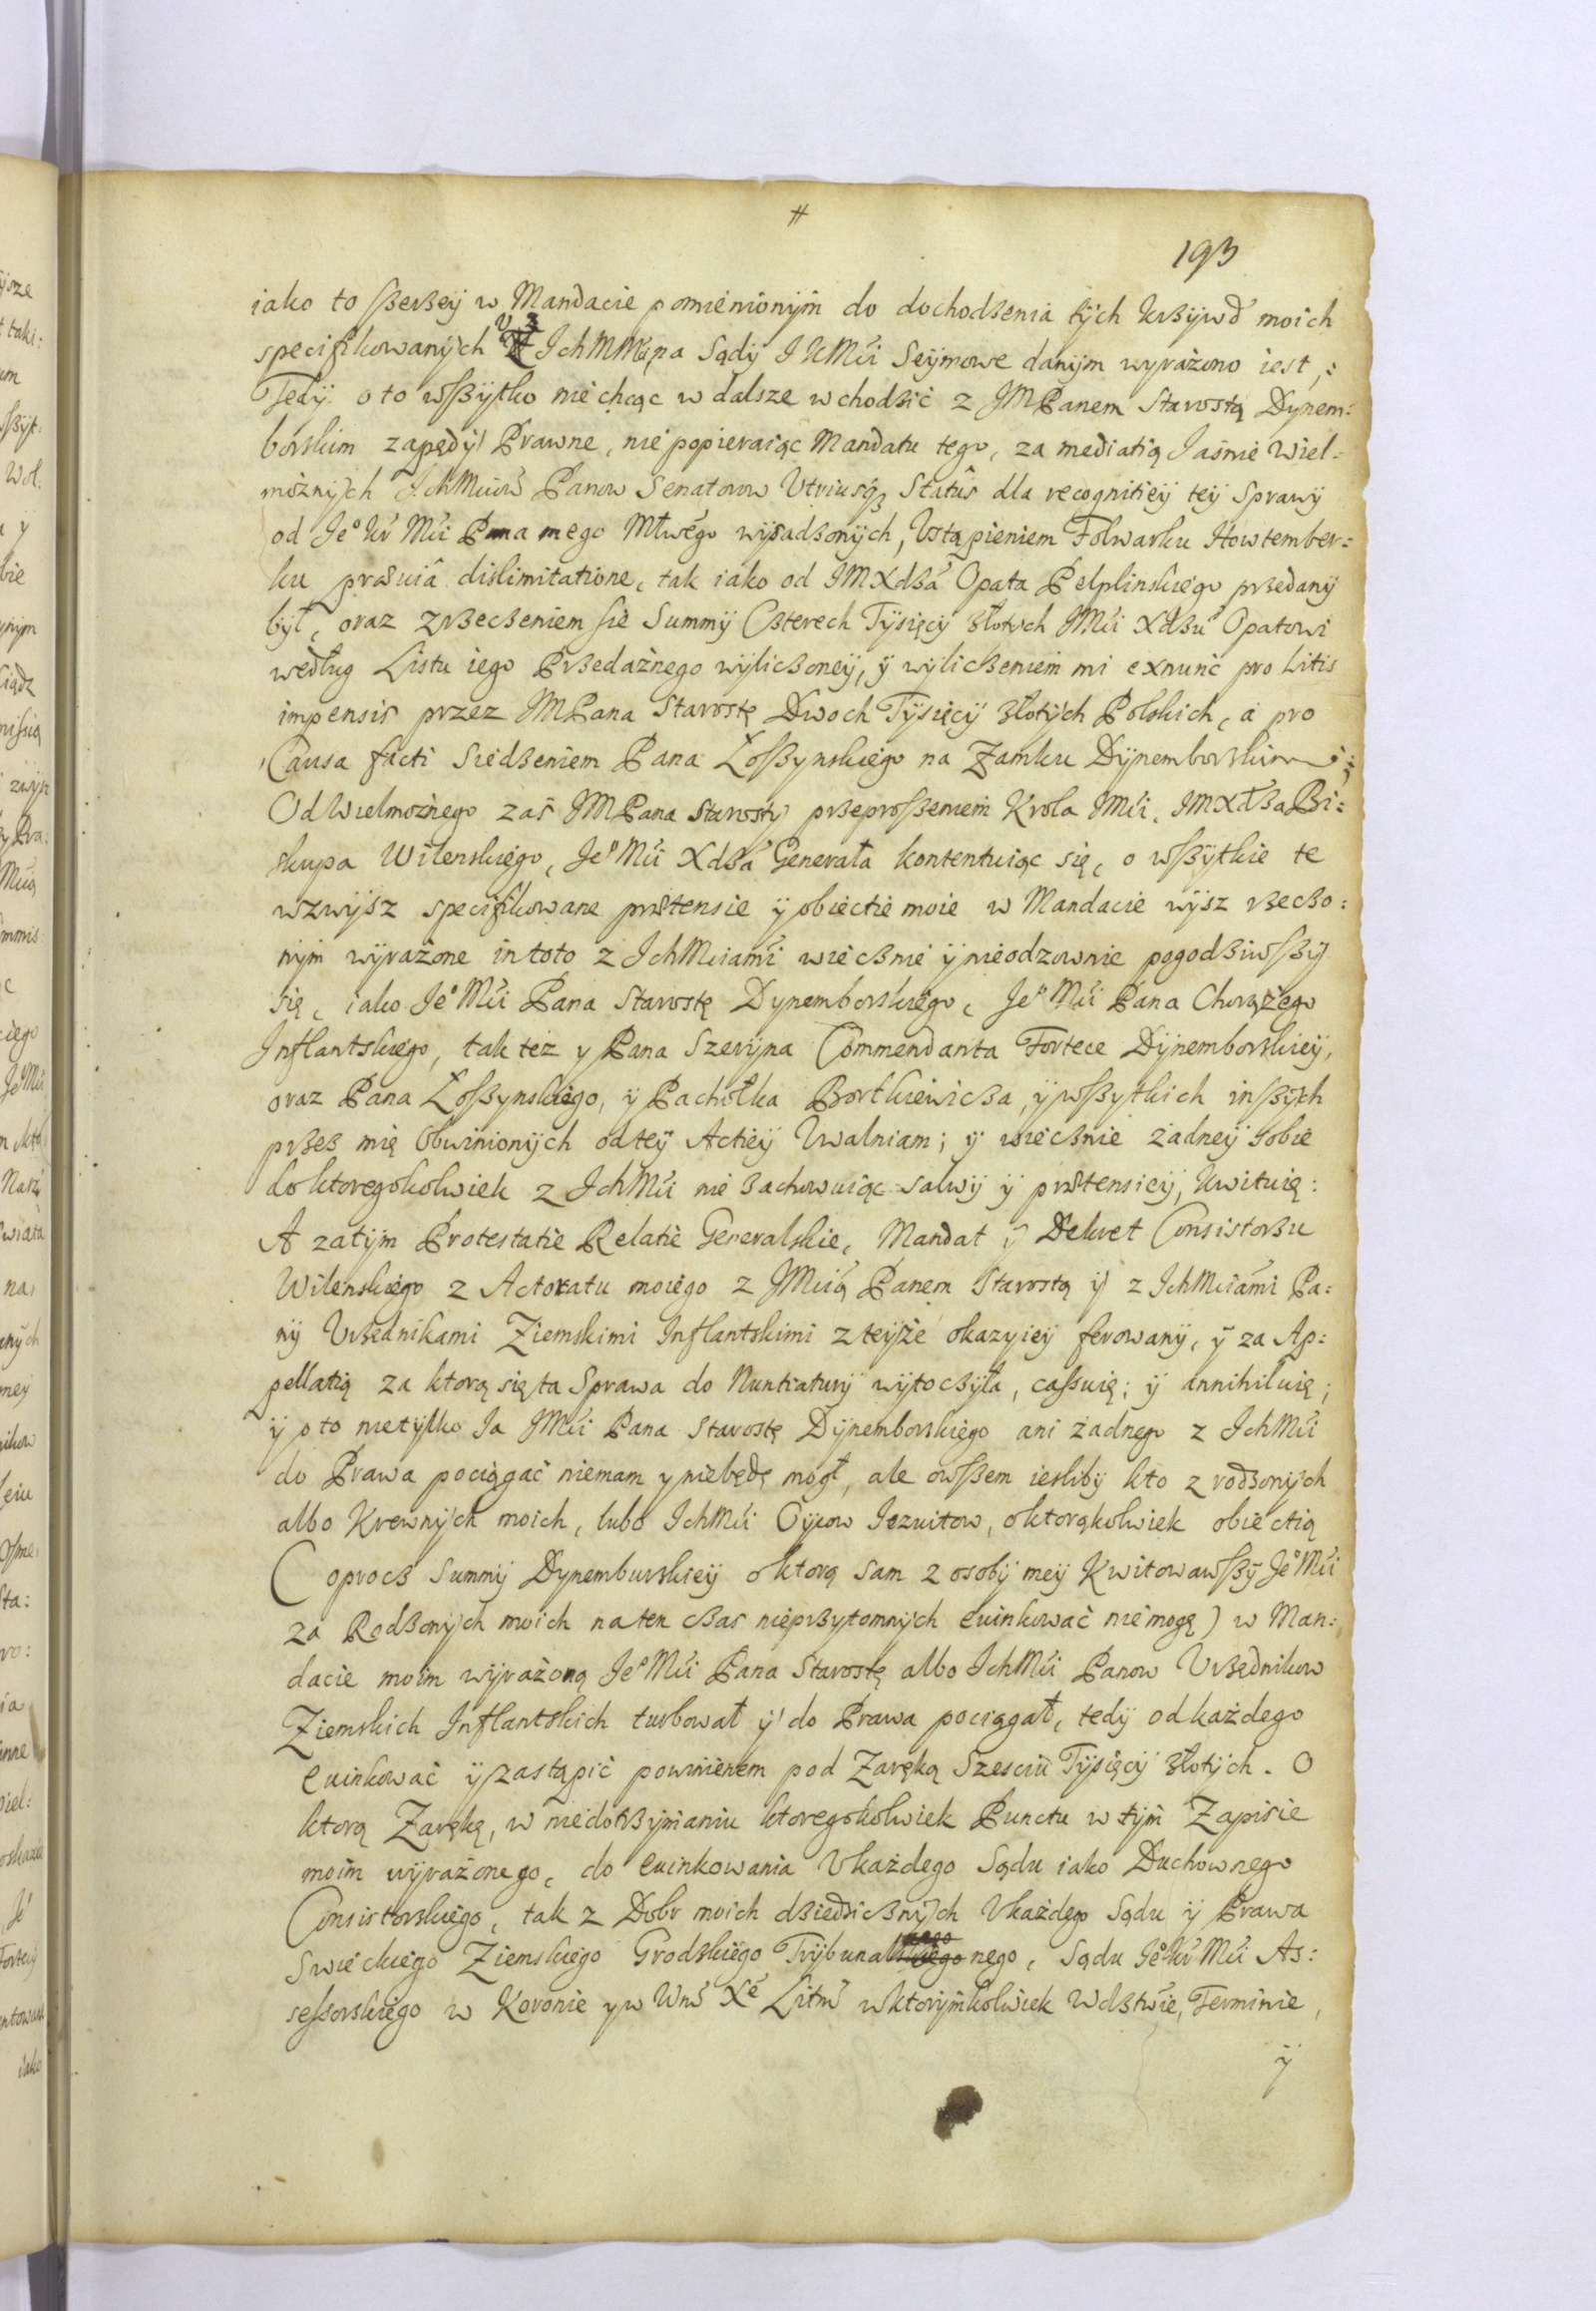 #
193
iako to szerzeÿ w Mandacie pomienionÿm do dochodzenia tÿch krzÿwd moich
specifikowanÿch z IchMM na Sądÿ IKMći Seÿmowe danÿm wyrażono iest,:
Tedÿ o to wszÿtko nie chcąc w dalsze wchodzić z JMPanem Starostą Dynem:
borskim zapędÿ Prawne, nie popieraiąc Mandatu tego, za mediatią Jaśnie Wiel-
możnÿch IchMciow Panow Senatorow Utriusq3 Statûs dla recognitieÿ teÿ Sprawÿ
od Je° Kr Mći Pana mego Młwégo wÿsadzonÿch, Ustąpieniem Folwarku Howtember:
ku prævia dislimitatione, tak iako od IMXdza Opata Pelplinskiego przedanÿ
bÿł, oraz zrzeczeniem sie Summÿ Czterech Tÿsięcÿ złotÿch JMći Xdzu Opatowi
według Listu iego Przedażnego wÿliczoneÿ, ÿ wÿliczeniem mi exnunc pro Litis
impensis przez JMPana Starostę Dwoch Tÿsięcÿ złotÿch Polskich, a pro
Causa facti Siedzeniem Pana Łoszynskiego na Zamku Dÿnemborskim;
Od Wielmożnego zaś JMPana Starostÿ przeproszeniem Krola JMći, JMXdza Bi:
skupa Wilenskiego, Je° Mći Xdza Generała kontentuiąc się, o wszÿtkie te
wzwÿsz specifikowane prætensie ÿ obiectie moie w Mandacie wÿsz rzeczo:
nÿm wÿrażone in toto z IchMciami wiecznie ÿ nieodzownie pogodziwszÿ
się, iako Je° Mći Pana Starostę Dynemborskiego, Je° Mći Pana Chorążego
Inflantskiego, tak też y Pana Szerÿna Commendanta Fortece Dÿnemborskieÿ,
oraz Pana Łoszynskiego, ÿ Pachołka Bortkiewicza, ÿ wszytkich inszÿch
przez mię Obwinionÿch od teÿ Actieÿ Uwalniam; ÿ wiecznie żadneÿ sobie
do ktoregokolwiek z IchMći nie zachowuiąc salwÿ ÿ prætensieÿ, kwituię:
A zatÿm Protestatie Relatie Generalskie, Mandat ÿ Dekret Consistorzu
Wilenskiego z Actoratu moiego z JMcią Panem Starostą ÿ z IchMciami Pa:
nÿ Urzednikami Ziemskimi Inflantskimi z teÿże okazyieÿ ferowanÿ, ÿ za Ap:
pellatią za ktorą się ta Sprawa do Nuntiaturÿ wÿtoczÿła, cassuię; ÿ annihiluię;
ÿ o to nietÿlko Ja JMći Pana Starostę Dÿnemborskiego ani żadnego z IchMći
do Prawa pociągać niemam y niebędę mogł, ale owszem iesliby kto z rodzonÿch
albo Krewnÿch moich, lubo IchMći Oÿcow Jezuitow, o ktorąkolwiek obiectią
( oprocz Summÿ Dynemburskieÿ o ktorą sam z osobÿ meÿ Kwitowawszÿ Je° Mći
za Rodzonÿch moich na ten czas nieprzytomnÿch ewinkować nie mogę ) w Man:
dacie moim wÿrażoną Je° Mći Pana Starostę albo IchMći Panow Urzędnikow
Ziemskich Inflantskich turbował ÿ do Prawa pociągał, tedÿ od każdego
ewinkować ÿ zastąpić powinienem pod Zaręką Szesciu Tÿsięcÿ złotÿch. O
ktorą Zarękę, w niedotrzÿmaniu ktoregokolwiek Punctu w tÿm Zapisie
moim wÿrażonego, do ewinkowania U każdego Sądu iako Duchownego
Consistorskiego, tak z Dobr moich dziedzicznÿch U każdego Sądu ÿ Prawa
Swieckiego Ziemskiego Grodzkiego Trÿbunalnego, Sądu Je° Kr Mći As:
sessorskiego w Koronie y w Wm Xe Litm w ktorÿmkolwiek Wdztwie, Terminie,
ÿ